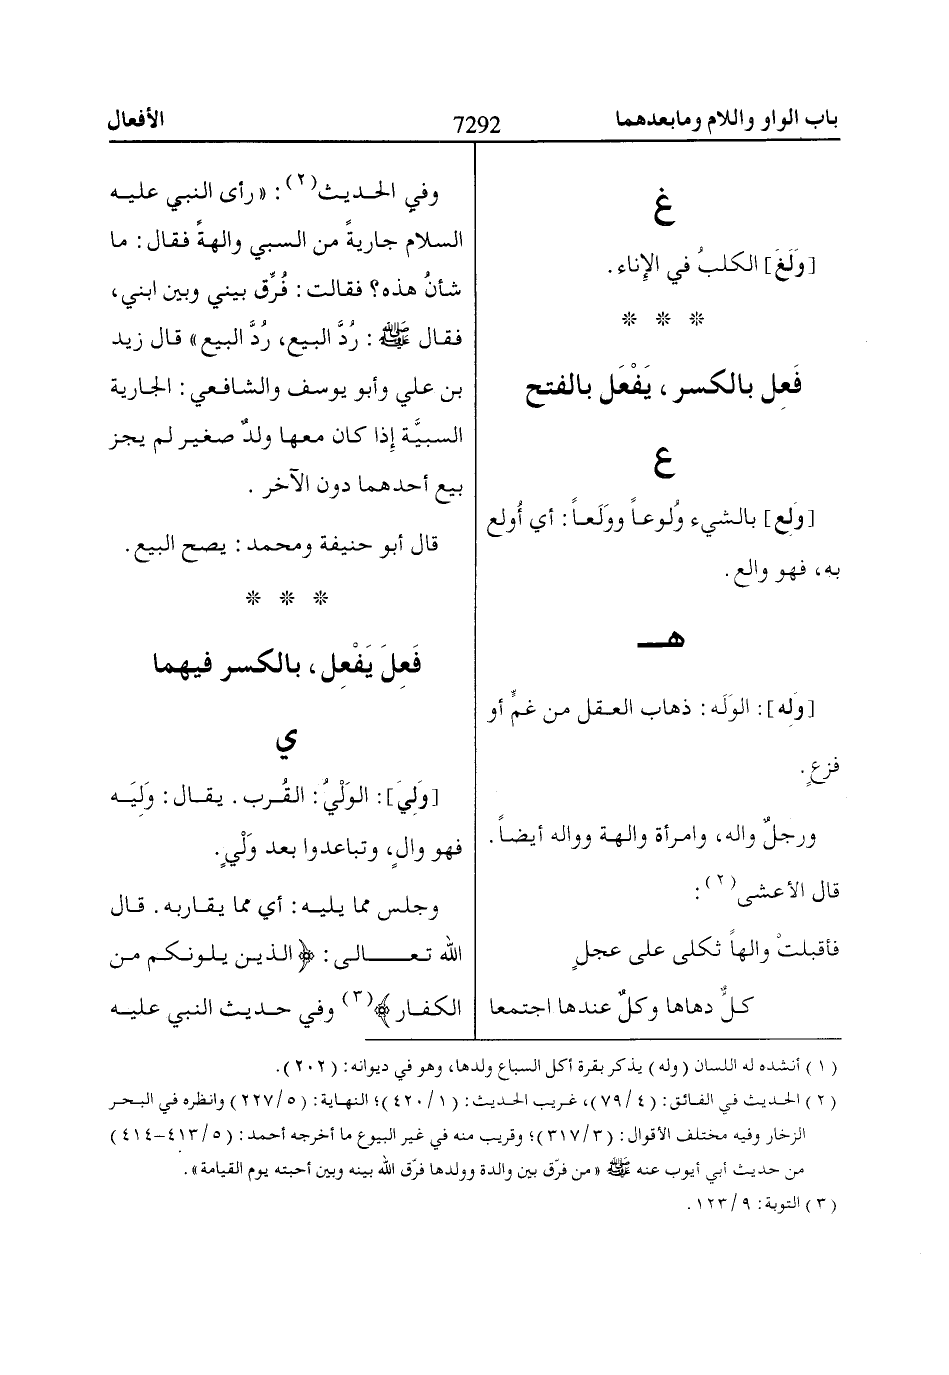 باب الواو واللام ومابعدهما
7292
الأفعال
غ
[وَلَغَ] الكلبُ في الإناء.
* * *
فَعِل بالكسر، يَفْعَل بالفتح
ع
[وَلِع] بالشيء وَُلوعاً ووَلَعاً: أي أُولع
به، فهو والع.
هـ
[وَلِه]: الوَلَه: ذهاب العقل من غمٍّ أو
فزعٍ.
ورجلٌ واله، وامرأة والهة وواله أيضاً.
قال الأعشى(٢):
فأقبلتْ والهاً ثكلى على عجلٍ
كلٌّ دهاها وكلٌ عندها اجتمعا
وفي الحديث(٢): «رأى النبي عليه
السلام جاريةً من السبي والهةً فقال: ما
شأنُ هذه؟ فقالت: فُرِّق بيني وبين ابني،
فقال ﷺ: رُدَّ البيع، رُدَّ البيع» قال زيد
بن علي وأبو يوسف والشافعي: الجارية
السبيَّة إذا كان معها ولدٌ صغير لم يجز
بيع أحدهما دون الآخر.
قال أبو حنيفة ومحمد: يصح البيع.
* * *
فَعِلَ يَفْعِل، بالكسر فيهما
ي
[وَلِيَ]: الوَلْيُ: القُرب. يقال: وَلِيَه
فهو والٍ، وتباعدوا بعد وَلْيٍ.
وجلس مما يليه: أي مما يقاربه. قال
الله تعالى: ﴿الذين يلونكم من
الكفار﴾(٣) وفي حديث النبي عليه
(١) أنشده له اللسان (وله) يذكر بقرة أكل السباع ولدها، وهو في ديوانه: (٢٠٢).
(٢) الحديث في الفائق: (٧٩/٤)، غريب الحديث: (٤٢٠/١)؛ النهاية: (٢٢٧/٥) وانظره في البحر
الزخار وفيه مختلف الأقوال: (٣١٧/٣)؛ وقريب منه في غير البيوع ما أخرجه أحمد: (٤١٣/٥-٤١٤)
من حديث أبي أيوب عنه ﷺ «من فرّق بين والدة وولدها فرّق الله بينه وبين أحبته يوم القيامة».
(٣) التوبة: ١٢٣/٩.